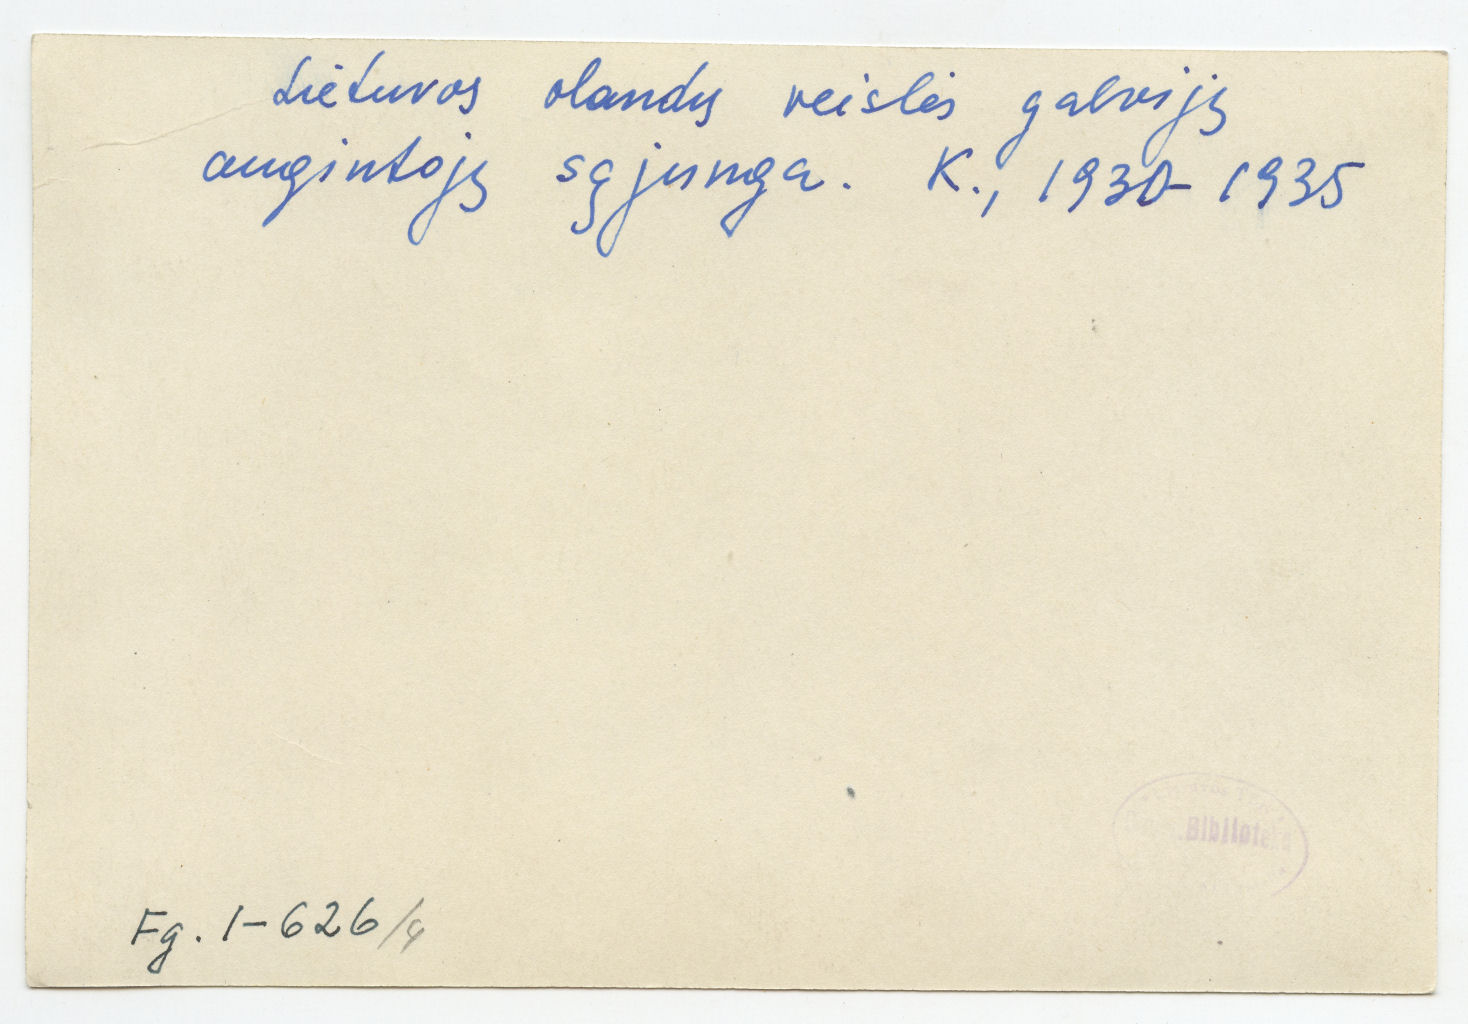 Lietuvos olandų veislės galvijų
augintojų sąjunga. K., 1930-1935
Biblioteka
Fg. 1-626/4